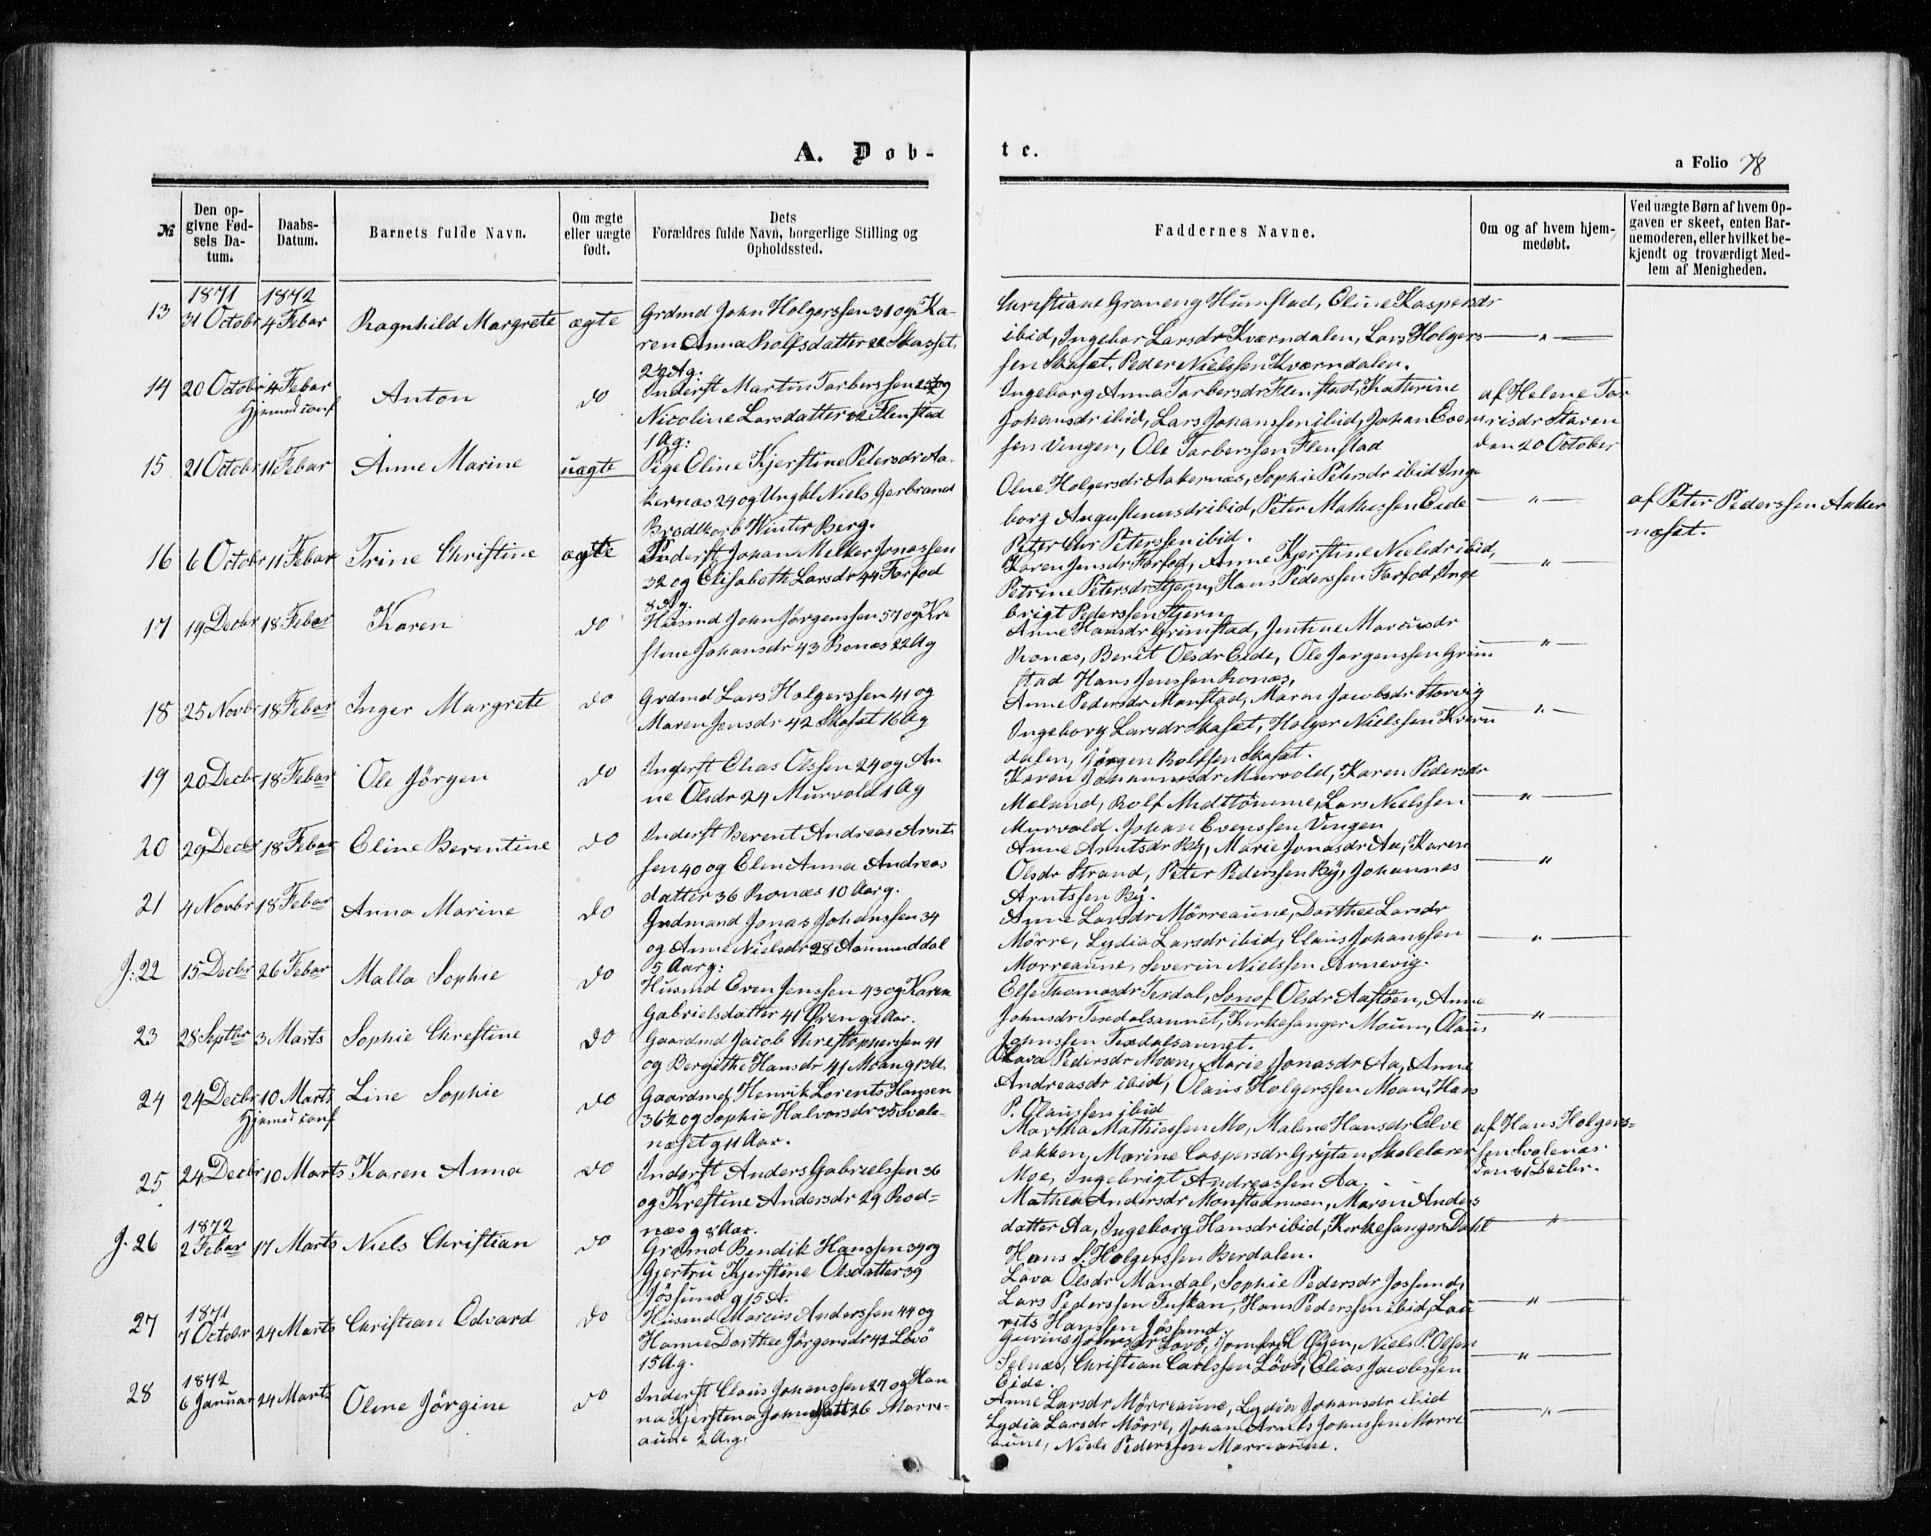 A. Døb-
te.
a Folio 78
№
Den opgivne Fødsels Datum.
Daabs-Datum.
Barnets fulde Navn.
Om ægte eller uægte født.
Dets Forældres fulde Navn, borgerlige Stilling og Opholdssted.
Faddernes Navne.
Om og af hvem hjemmedøbt.
Ved uægte Børn af hvem Opgaven er skeet, enten Barnemoderen, eller hvilket bekjendt og troværdigt Medlem af Menigheden.
1871 1872
13 31 Octobr 4 Febar Ragnhild Margrete ægte
Grdmd John Holgerssen 31 og Ka-
ren Anna Rolfsdatter 22 Skasset
2 Ag.
Christiane Graneng Humstad, Oline Kaspersdr
ibid, Ingebor Larsdr Kværndalen, Lars Holgers
sen Skaset. Peder Nielssen Kværndalen.
14 20 Octobr 4 Febar Anton do
Hjemmed conf
Inderst Martin Tarberssen og
Nicoline Larsdatter Flenstad
1 Ag:
Ingeborg Anna Tarbersdr Flenstad, Katterine
Johansdr ibid, Lars Johanssen ibid, Johan Even
sen Vingen, Ole Tarberssen Flenstad
af Helene Tor
risdr Staren
den 20 October
15 21 Octobr 11 Febar Anne Marine uægte
Pige Eline Kjerstine Petersdr Aa-
kernæs 24 og Ungkl Niels Gerbrand
Brodkorb Winter Berg.
Olne Holgersdr Aakernæs, Sophie Petersdr ibid Inge
borg Augustinusdr ibid, Peter Mathessen Eide
Peter Chr Peterssen ibid.
af Peter Pederssen Aaker
næset.
16 6 Octobr 11 Febar Trine Christine ægte
Inderst Johan Melker Jonassen
32 og Elisabeth Larsdr 44 Farfod
8 Ag.
Karen Jensdr Farfod, Anne Kjerstine Nielsdr ibid,
Petrine Petersdr Stjern, Hans Pederssen Farfod, Inge
brigt Pederssen Stjern
17 19 Decbr 18 Febar Karen do
Husmd John Jørgenssen 57 og Kre
stine Johansdr 43 Ronæs 22 Ag
Anne Hansdr Grimstad, Jentine Marcusdr
Ronæs, Beret Olsdr Eide, Ole Jørgenssen Grim
stad Hans Jenssen Ronæs,
18 25 Novbr 18 Febar Inger Margrete do
Grdmd Lars Holgerssen 41 og
Maren Jensdr 42 Skaset 16 Ag
Anne Pedersdr Monstad, Maren Jacobsdr Storvig
Ingeborg Larsdr Skaset, Holger Nielssen Kværn
dalen, Jørgen Rolfsen Skaset.
19 20 Decbr 18 Febar Ole Jörgen do
Inderst Elias Olssen 24 og An
ne Olsdr 24 Murvold 1 Ag
Karen Johannesdr Murvold, Karen Pedersdr
Meland, Rolf Midttømme, Lars Nielssen
Murvold. Johan Evenssen Vingen
20 29 Decbr 18 Febar Eline Berentine do
Inderst Berent Andreas Arnt
sen 40 og Elen Anna Andreas
datter 36 Ronæs 10 Aarg.
Anne Arntsdr By, Marie Jonasdr Aa, Karen
Olsdr Strand, Peter Pederssen By, Johannes
Arntssen By.
21 4 Novbr 18 Febar Anna Marine do
Grdmand Jonas Johanssen 34
og Anne Nielsdr 28 Aamunddal
5 Aarg:
Anne Larsdr Mörreaune, Dorthee Larsdr
Mörre, Lydia Larsdr ibid, Claus Johanssen
Morreaune, Severin Nielssen Arnevig.
J: 22 15 Decbr 26 Febar Malla Sophie do
Husmd Even Jenssen 43 og Karen
Gabrielsdatter 41 Øren g 21 Aar.
Else Thomasdr Texdal, Olsdr Aastöen, Anne
Johnsdr Texdalsaunet, Kirkesanger Moum, Olaus
Johnssen Texdalsaunet.
23 28 Septbr 3 Marts Sophie Chrestine do
Gaardmd Jacob Christopherssen 41
og Bergithe Hansdr 41 Moan g 13
Lava Pedersdr Moan, Marie Jonasdr Aa, Anne
Andreasdr ibid, Olaus Holgerssen Moan, Hans
P. Olaussen ibid
24 24 Decbr 10 Marts Line Sophie do
Hjemmed conf
Gaardmd, Henrik Lorents Hansen
36 og Sophie Halvorsdr 35 Svale-
næset g 11 Aar.
Martha Mathiessen Mo, Malene Hansdr Elve
bakken, Marine Caspersdr Grytan, Skolelærer
Moe, Ingebrigt Andreassen Aa.
af Hans Holgers-
sen Svalenæs
den 31 Decbr.
25 24 Decbr 10 Marts Karen Anna do
Inderst Anders Gabrielssen 36
og Krestine Andersdr 29, Rod-
næs g 8 Aar.
Mathea Andersdr Monstadmoen, Maren Anders
datter Aa, Ingeborg Hansdr ibid, Kirkesanger Dahl
Hans L Holgerssen Berdalen.
1872
J. 26 2 Febar 17 Marts Niels Christian do
Grdmd Bendik Hanssen 39 og
Gjertru Kjerstine Olsdatter 39
Jøssund g 15 A.
Lava Olsdr Mandal, Sophie Pedersdr Jossund,
Lars Pederssen Tuskan, Hans Pederssen ibid, Lau
rits Hanssen Jössund.
1871
27 7 Octobr 24 Marts Christian Edvard do
Husmd Marcus Anderssen 44 og
Hanne Dorthee Jörgensdr 42 Lövö
15 Ag.
Lovö, Jomfru Öyen, Niels P. Olsen
Selnæs, Christian Carlssen Lövö, Elias Jacobssen
Eide.
1872
28 6 Januar 24 Marts Oline Jörgine do
Inderst Claus Johanssen 27 og Han
na Kjerstena Johnsdatt 26 Morre-
aune 2 Ag.
Anne Larsdr Mörreaune, Lydia Johansdr ibid
Lydia Larsdr Mörre, Johan Arnts Johnssen Morre
aune, Niels Pederssen Morreaune.